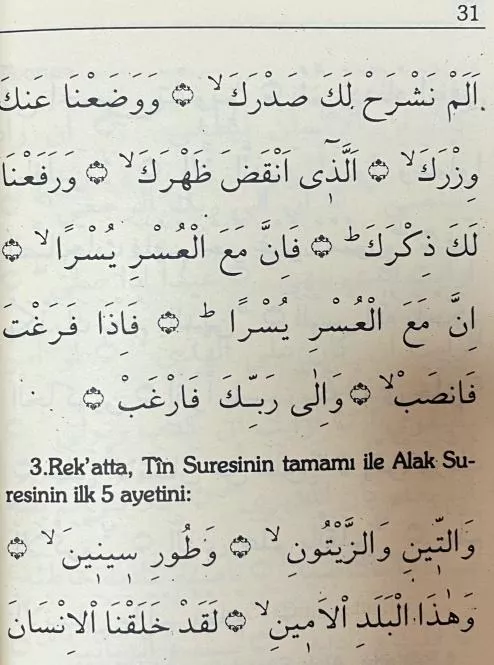 31
اَلَمْ نَشْرَحْ لَكَ صَدْرَكَۙ ۝ وَوَضَعْنَا عَنْكَ
وِزْرَكَۙ ۝ اَلَّذٖٓى اَنْقَضَ ظَهْرَكَۙ ۝ وَرَفَعْنَا
لَكَ ذِكْرَكَؕ ۝ فَاِنَّ مَعَ الْعُسْرِ يُسْرًاۙ ۝
اِنَّ مَعَ الْعُسْرِ يُسْرًاؕ ۝ فَاِذَا فَرَغْتَ
فَانْصَبْۙ ۝ وَاِلٰى رَبِّكَ فَارْغَبْ ۝
3.Rek’atta, Tîn Suresinin tamamı ile Alak Su-
resinin ilk 5 ayetini:
وَالتّٖينِ وَالزَّيْتُونِۙ ۝ وَطُورِ سٖينٖينَۙ ۝
وَهٰذَا الْبَلَدِ الْاَمٖينِۙ ۝ لَقَدْ خَلَقْنَا الْاِنْسَانَ